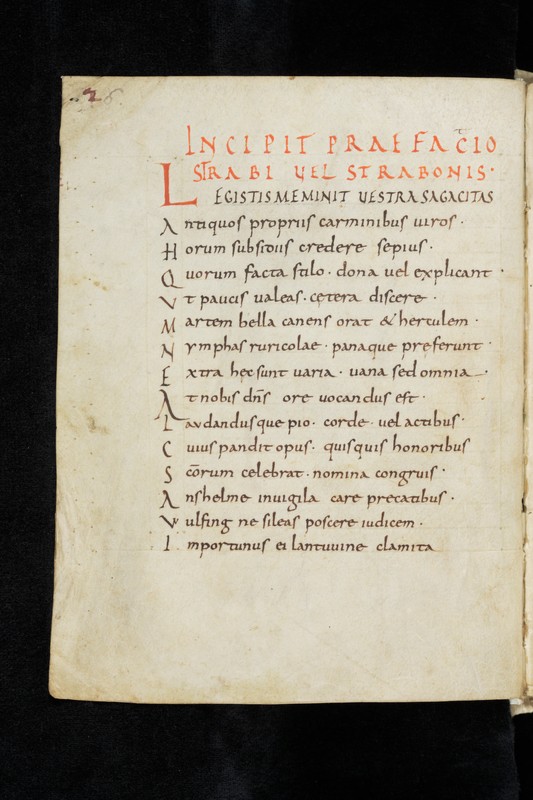 2
INCIPIT PRAEFACIO
STRABI VEL STRABONIS·
LEGISTIS MEMINIT VESTRA SAGACITAS
Antiquos propriis carminibus uiros·
Horum subsidiis credere sepius·
Quorum facta stilo· dona uel explicant·
Vt paucis ualeas· cętera discere·
Martem bella canens orat & herculem·
Nymphas ruricolae· panaque preferunt·
Extra hęc sunt uaria· uana sed omnia·
At nobis dn̄s ore uocandus est·
Laudandusque pio· corde· uel actibus·
Cuius pandit opus· quisquis honoribus
Scōrum celebrat· nomina congruis·
Anshelme inuigila care precatibus·
Vulfing ne sileas poscere iudicem·
Importunus ei lantuuine clamita